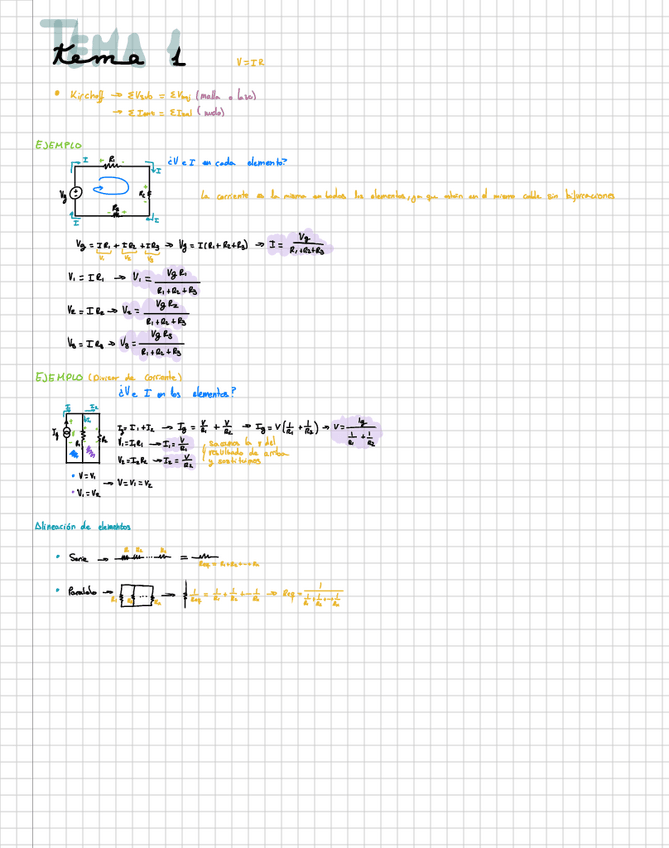 TEMA 1
tema 1
V = I R
• Kirchoff → ΣVsub = ΣVbaj (malla o lazo)
→ ΣIent = ΣIsal (nudo)
EJEMPLO
¿V e I en cada elemento?
I R1 I
Vg
R3
I I
La corriente es la misma en todos los elementos, ya que están en el mismo cable sin bifurcaciones
Vg = I R1 + I R2 + I R3 → Vg = I(R1+R2+R3) → I = Vg / (R1+R2+R3)
V1 V2 V3
V1 = I R1 → V1 = Vg R1 / (R1+R2+R3)
V2 = I R2 → V2 = Vg R2 / (R1+R2+R3)
V3 = I R3 → V3 = Vg R3 / (R1+R2+R3)
EJEMPLO (Divisor de corriente)
¿V e I en los elementos?
Ig = I1 + I2 → Ig = V/R1 + V/R2 → Ig = V(1/R1 + 1/R2) → V = Ig / (1/R1 + 1/R2)
V1 = I1R1 → I1 = V/R1
V2 = I2R2 → I2 = V/R2
sacamos la v del
resultado de arriba
y sustituimos
• V = V1
• V1 = V2
→ V = V1 = V2
Alineación de elementos
• Serie → R1 R2 ... Rn = Req = R1+R2+...Rn
• Paralelo → R1 R2 ... Rn → 1/Req = 1/R1 + 1/R2 + ... 1/Rn → Req = 1 / (1/R1 + 1/R2 + ... 1/Rn)